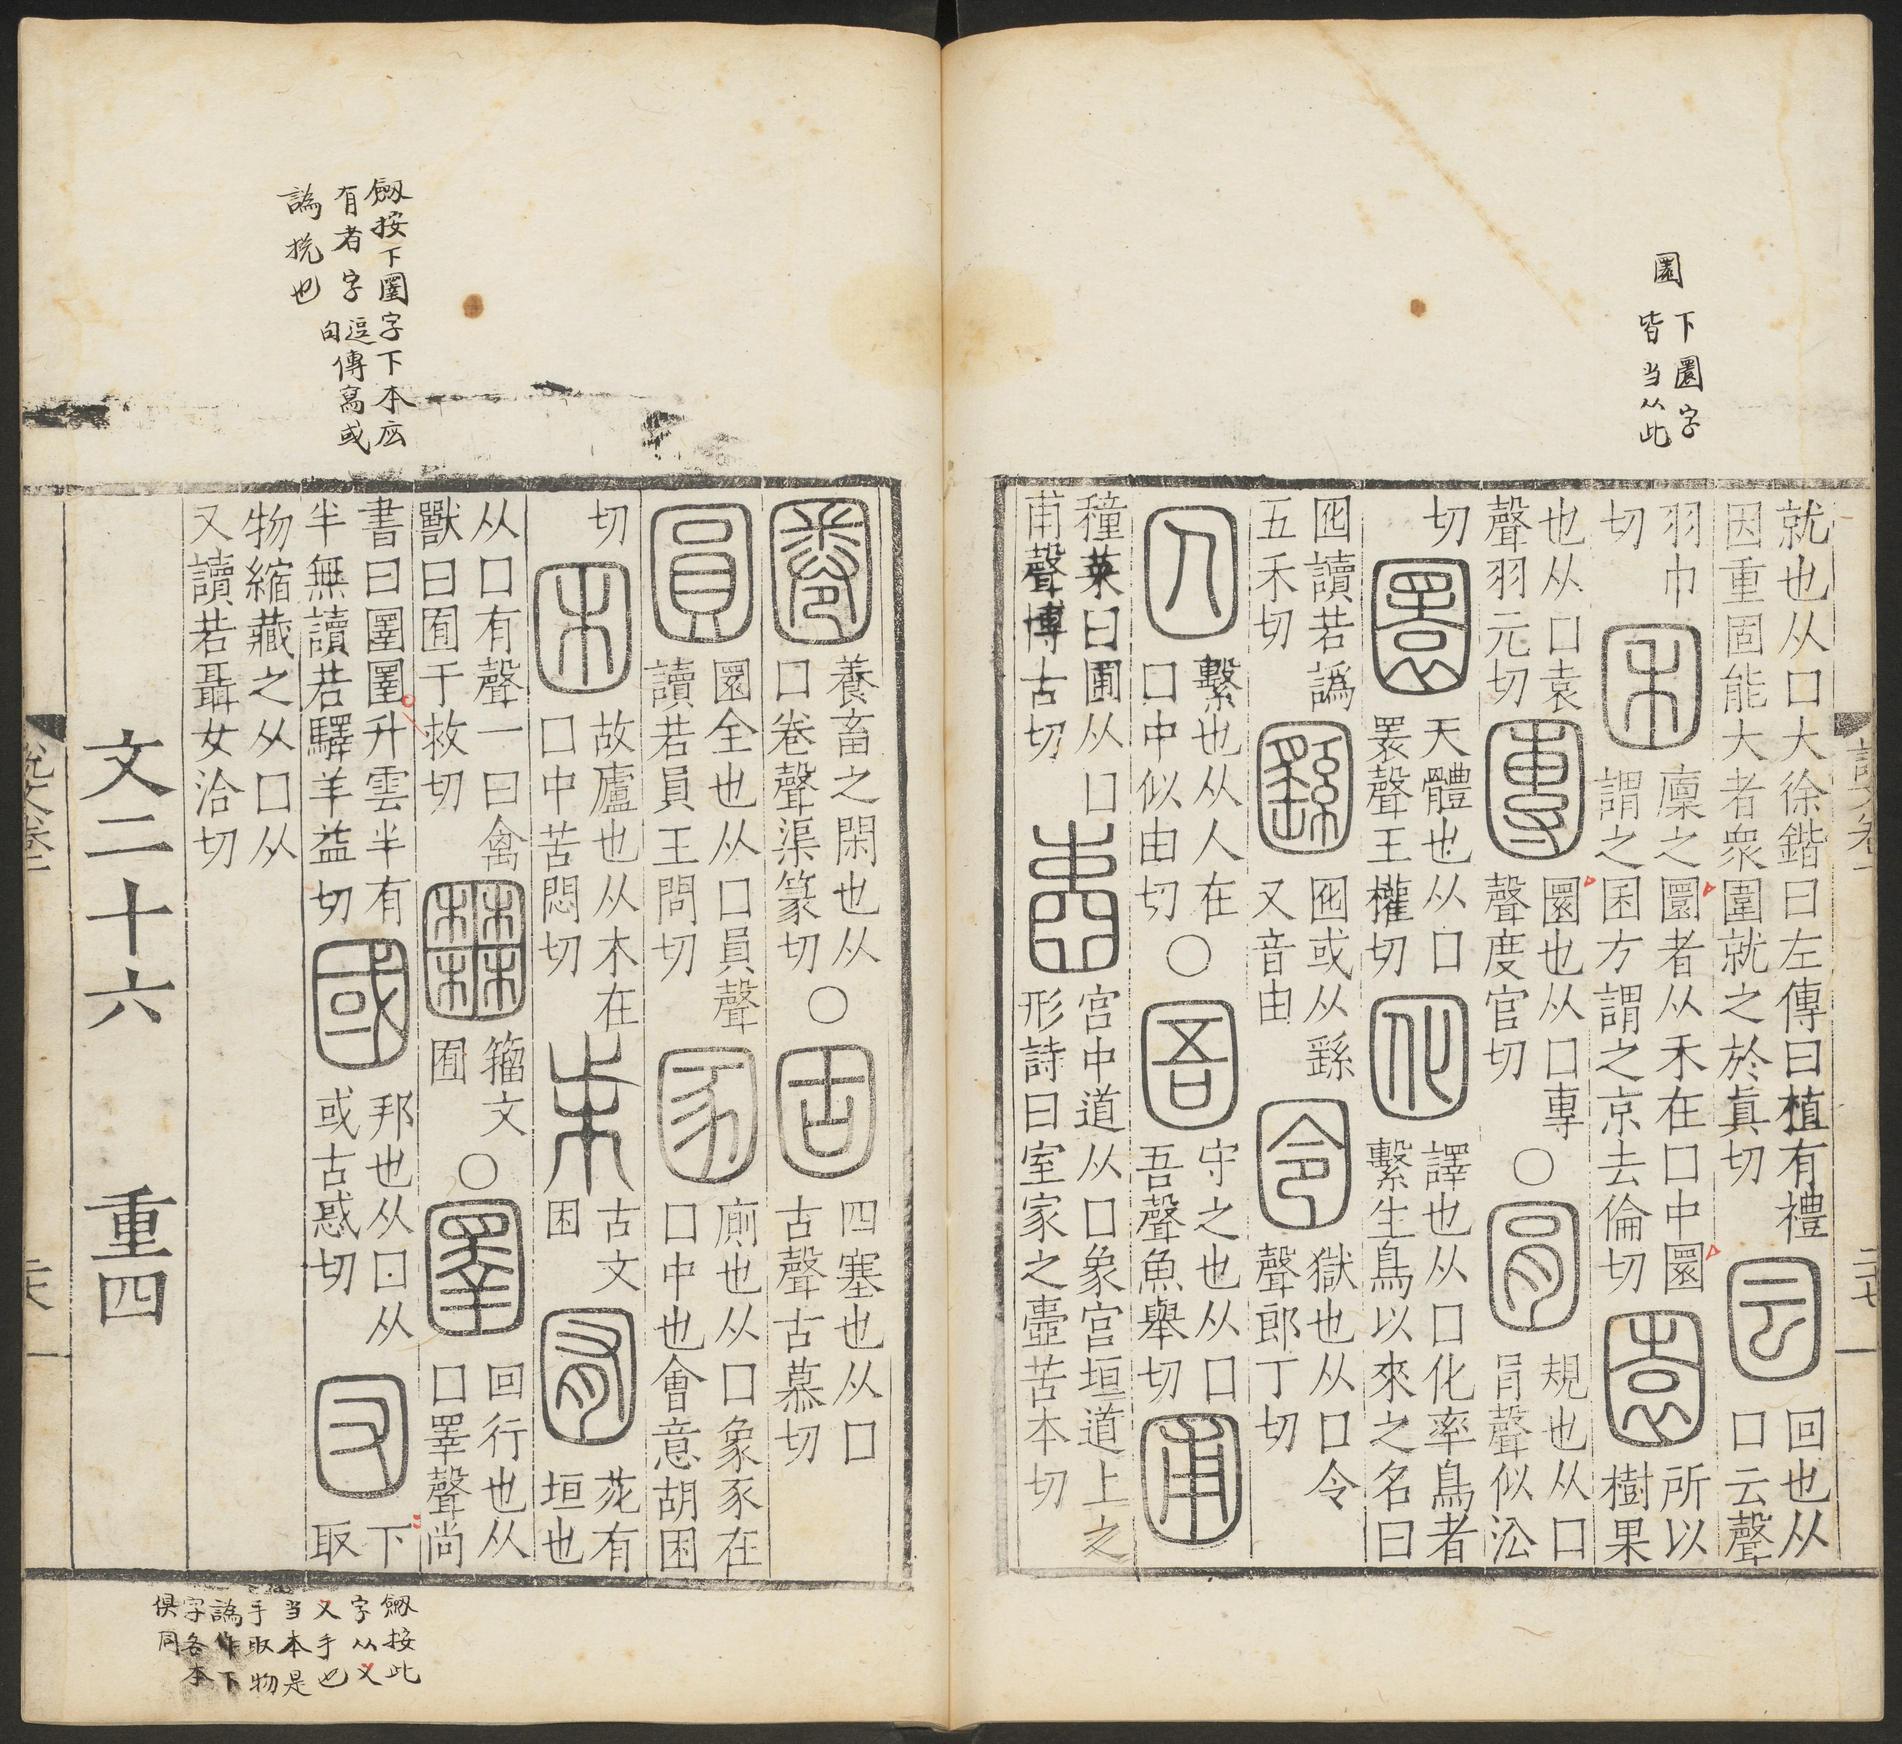 圜
下圜字
皆当从此
就也从囗大徐鍇曰左傳曰植有禮
因重固能大者衆圍就之於真切
囩
回也从
囗云聲
羽巾
切
囷
廩之圜者从禾在囗中圜
謂之囷方謂之京去倫切
園
所以
樹果
也从囗袁
聲羽元切
團
圜也从囗專
聲度官切
○
規也从囗
肙聲似沇
切
圜
天體也从囗
睘聲王權切
囮
譯也从囗化率鳥者
繫生鳥以來之名曰
囮讀若譌
五禾切
囮或从繇
又音由
囹
獄也从囗令
聲郎丁切
囚
繫也从人在
囗中似由切
○
圄
守之也从囗
吾聲魚舉切
圃
穜菜曰圃从囗
甫聲博古切
壼
宮中道从囗象宮垣道上之
形詩曰室家之壼苦本切
劔按下圛字下本応
有者字逗句傳寫或
譌捝也
圈
養畜之閑也从
囗卷聲渠篆切
○
固
四塞也从囗
古聲古慕切
圓
圜全也从囗員聲
讀若員王問切
圂
廁也从囗象豕在
囗中也會意胡困
切
困
故廬也从木在
囗中苦悶切
古文
困
囿
苑有
垣也
从囗有聲一曰禽
獸曰囿于救切
籀文
囿
○
圛
回行也从
囗睪聲尚
書曰圛圛升雲半有
半無讀若驛羊益切
國
邦也从囗从
或古惑切
下
取
物縮藏之从囗从
又讀若聶女洽切
文二十六 重四
劔按此
字从又
又手也
当本是
手取物
譌作下
字各本
俱同